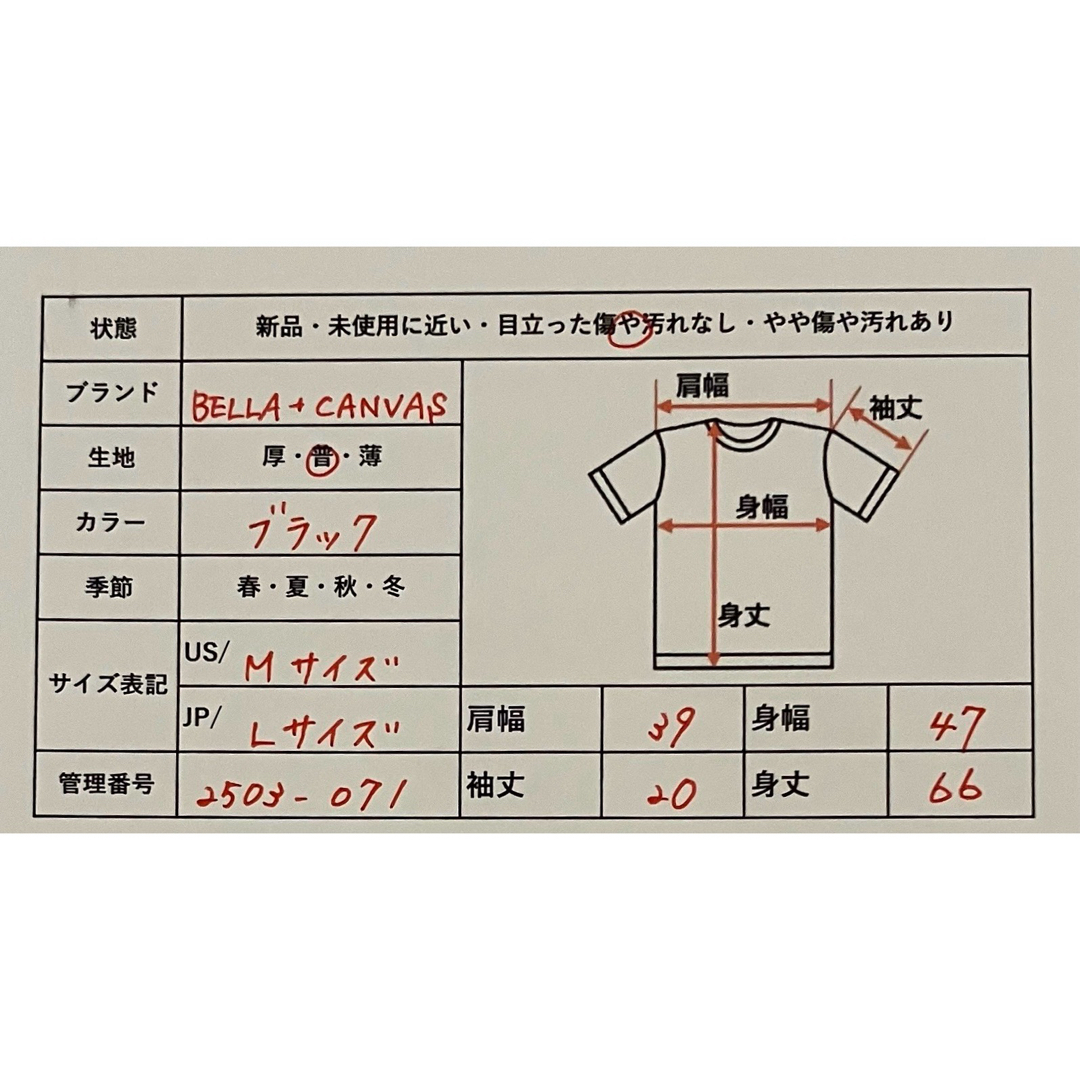 状態 新品・未使用に近い・目立った傷や汚れなし・やや傷や汚れあり
ブランド BELLA + CANVAS
生地 厚・普・薄
カラー ブラック
季節 春・夏・秋・冬
サイズ表記 US/ Mサイズ
JP/ Lサイズ
管理番号 2503-071
肩幅
袖丈
身幅
身丈
肩幅 39 身幅 47
袖丈 20 身丈 66